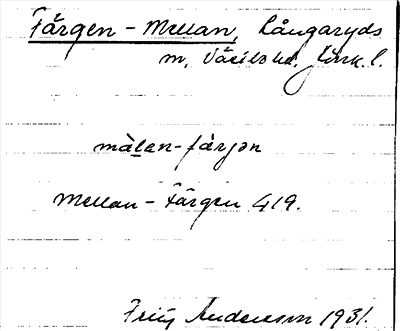 Färgen - Mellan, Långaryds
m, Västbo hd. Jönk. l.
målen-färjən
Mellan - Färgen 419.
Fritz Andersson 1931.